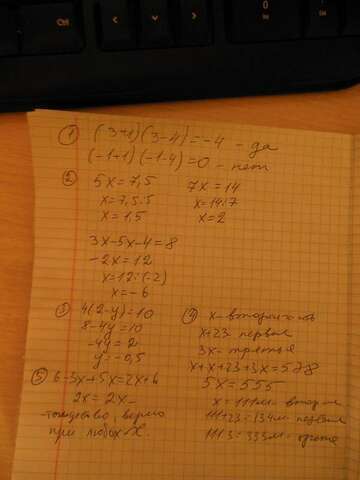 ① (3+1)(3-4)=-4 - да
(-1+1)(-1-4)=0 - нет
② 5x=7,5 7x=14
x=7,5:5 x=14:7
x=1,5 x=2
3x-5x-4=8
-2x=12
x=12:(-2)
x=-6
③ 4(2-y)=10
8-4y=10
-4y=2
y=-0,5
④ x-второй
x+23 первый
3x-третий
x+x+23+3x=578
5x=555
x=111м-второй
111+23=134м-первый
111·3=333м-третий
⑤ 6-3x+5x=2x+6
2x=2x-
-тождество, верно
при любом x.
Ctrl
0
Ins